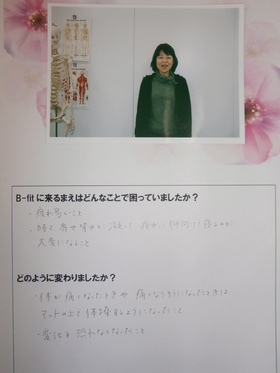 B-fitに来るまえはどんなことで困っていましたか？
・疲れ易いこと
大変になること
どのように変わりましたか？
・体が痛くなったときや痛くなりそうになったときは
マットの上で体操するようになったこと
・変化を恐れなくなったこと